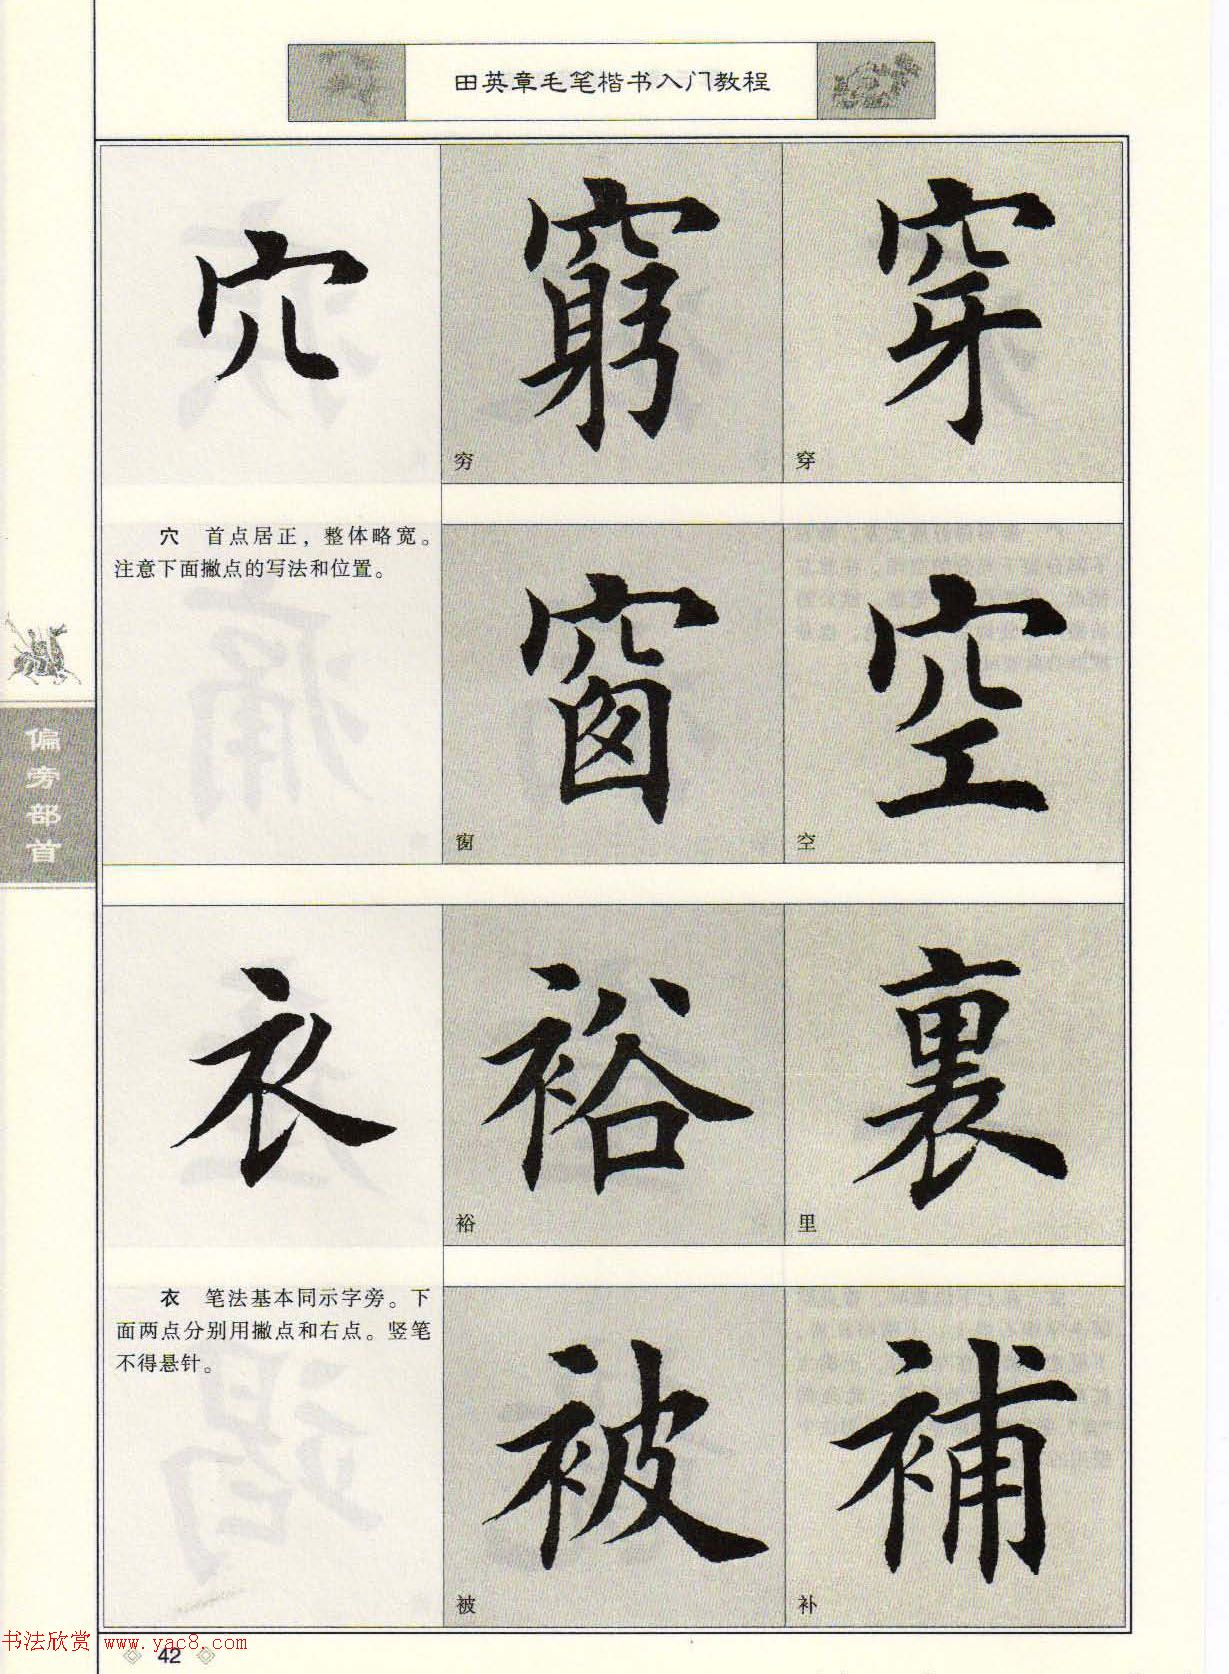 田英章毛笔楷书入门教程
穴 窮 穿
穷 穿
穴 首点居正，整体略宽。
注意下面撇点的写法和位置。
窗 空
窗 空
偏旁部首
衣 裕 裏
裕 里
衣 笔法基本同示字旁。下
面两点分别用撇点和右点。竖笔
不得悬针。
被 補
被 补
书法欣赏 www.yac8.com
42